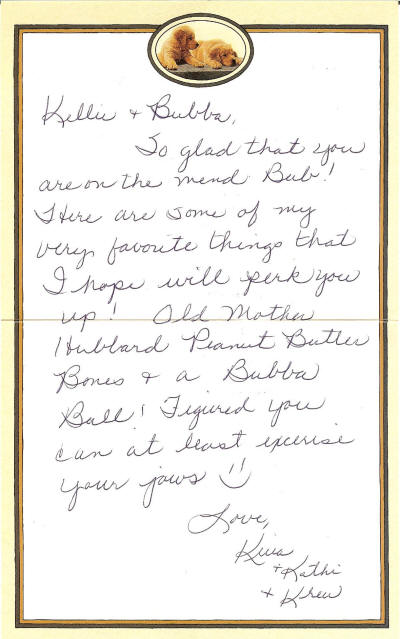 Kellie & Bubba,
So glad that you
are on the mend Bub!
Here are some of my
very favorite things that
I hope will perk you
up! Old Mother
Hubbard Peanut Butter
Bones & a Bubba
Ball! Figured you
can at least excerise
your jaws
Love,
Kiva
+ Kathi
+ Krew